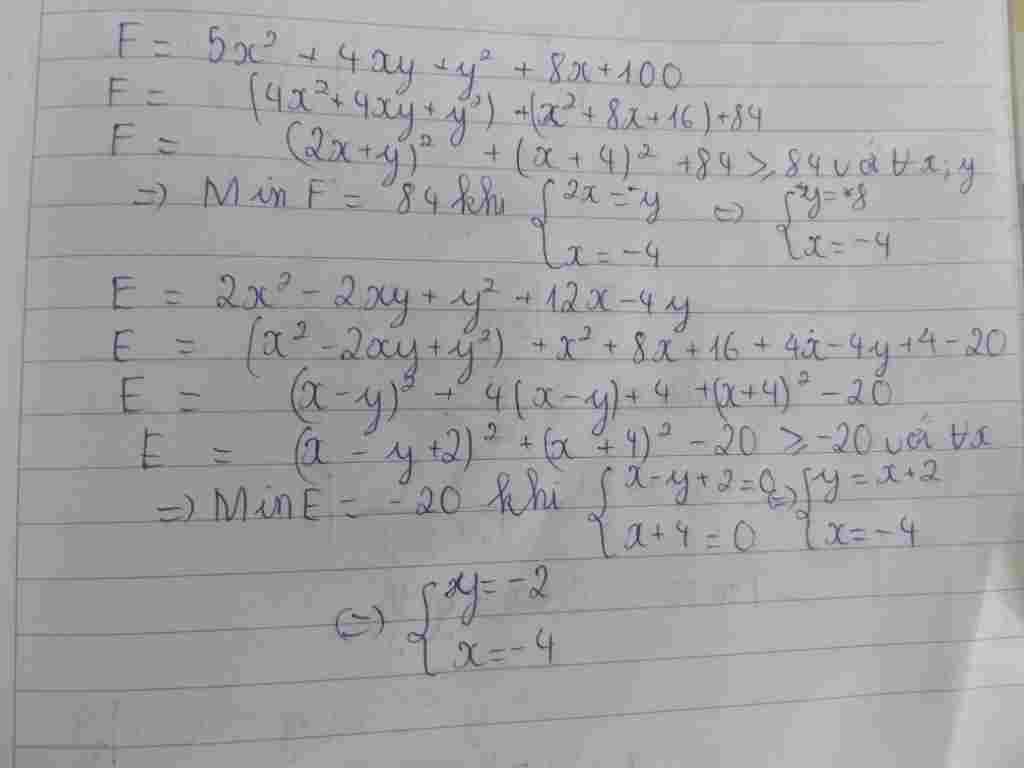 F = 5x² + 4xy + y² + 8x + 100
F = (4x² + 4xy + y²) + (x² + 8x + 16) + 84
F = (2x + y)² + (x + 4)² + 84 ≥ 84 với ∀x, y
=> Min F = 84 khi { 2x = -y ; x = -4 <=> { y = 8 ; x = -4
E = 2x² - 2xy + y² + 12x - 4y
E = (x² - 2xy + y²) + x² + 8x + 16 + 4x - 4y + 4 - 20
E = (x - y)² + 4(x - y) + 4 + (x + 4)² - 20
E = (x - y + 2)² + (x + 4)² - 20 ≥ -20 với ∀x
=> Min E = -20 khi { x - y + 2 = 0 ; x + 4 = 0 <=> { y = x + 2 ; x = -4
<=> { y = -2 ; x = -4